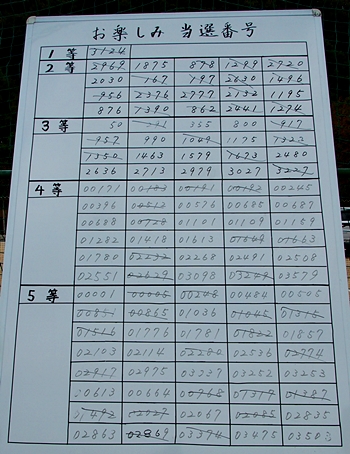 お楽しみ 当選番号
1 等 3124
2 等 2969 1875 878 1299 2920
2030 167 197 2630 1496
956 2376 2777 2132 1195
876 1390 862 2441 1274
3 等 50 355 800 917
957 990 1049 1175 1323
1350 1463 1579 1673 2480
2636 2713 2979 3027 3227
4 等 00171 00183 00191 00182 00245
00396 00513 00576 00685 00687
00688 00728 01101 01109 01159
01282 01418 01613 01649 01663
01780 02232 02268 02491 02508
02551 02629 03098 03248 03579
5 等 00001 00005 00248 00484 00505
00851 00865 01036 01045 01315
01516 01776 01781 01822 01857
02103 02114 02280 02536 02774
02917 02975 03237 03252 03253
20613 00664 00768 01317 01387
01492 02027 02067 02085 02835
02863 02869 03374 03475 03503